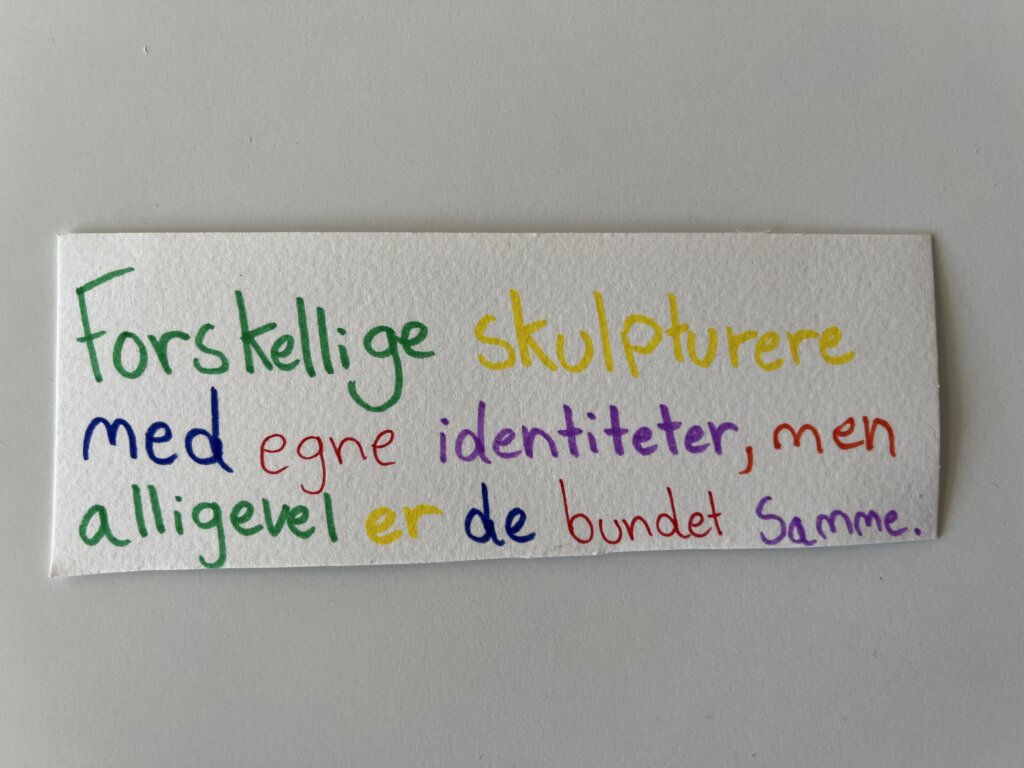 Forskellige skulpturere
med egne identiteter, men
alligevel er de bundet Samme.